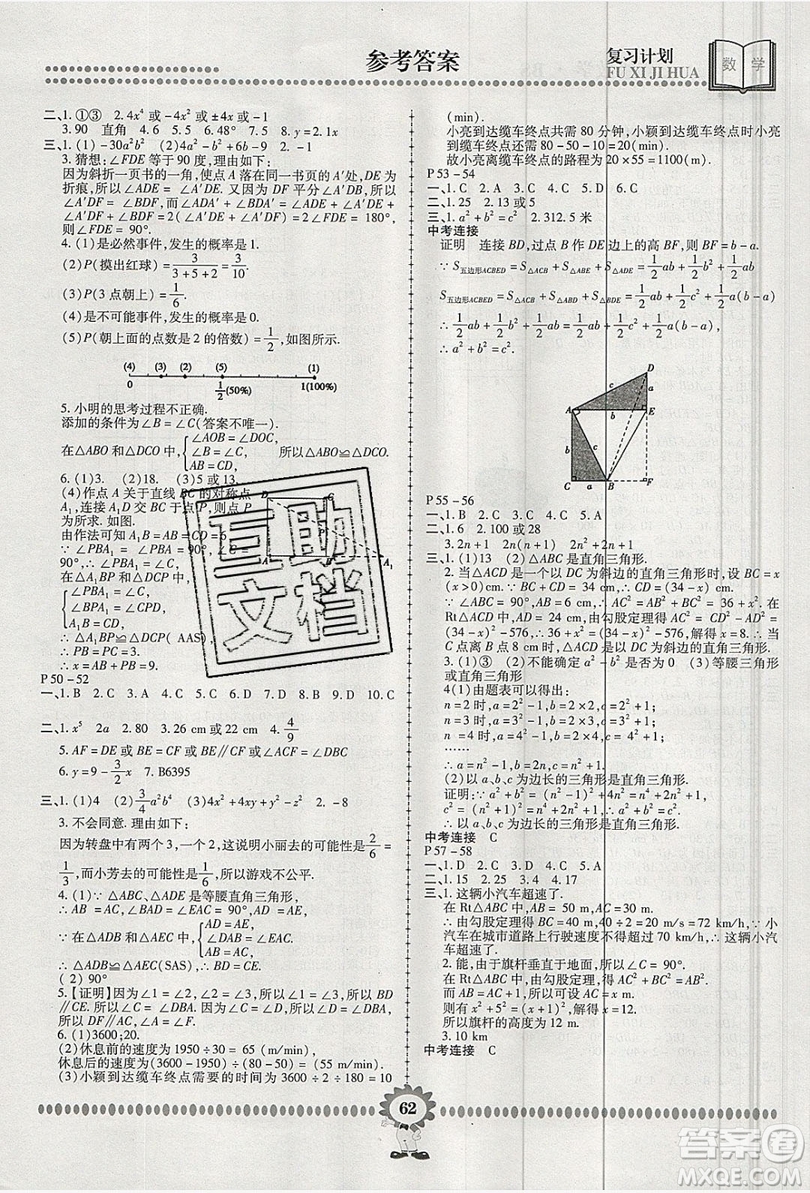 参考答案
复习计划
FU XI JI HUA
数学
二、1. ①③ 2. 4x⁴ 或 -4x² 或 ±4x 或 -1
3. 90 直角 4. 6 5. 48° 8. y = 2.1x
三、1. (1) -30a³b² (2) a² - 6b - 9 2. -1
3. 猜想：∠FDE 等于 90 度，理由如下：
因为斜折一页书的一角，使点 A 落在同一书页的 A′处，DE 为
折痕，所以∠ADE = ∠A′DE. 又因为 DF 平分∠A′DB，所以
∠A′DF = ∠BDF = ∠ADA′ + ∠BDA′ = ∠ADE + ∠A′DE +
∠A′DF + ∠BDF = 2(∠A′DE + ∠A′DF) = 2∠FDE = 180°，
所以∠FDE = 90°.
4. (1)是必然事件，发生的概率是 1.
(2)P(摸出红球) = 3/(3+5+2) = 3/10
(3)P(3 点朝上) = 1/6.
(4)是不可能事件，发生的概率是 0.
(5)P(朝上面的点数是 2 的倍数) = 1/2，如图所示.
(4) (3) (2) (5) (1)
0 1/2(50%) 1(100%)
5. 小明的思考过程不正确.
添加的条件为∠B = ∠C(答案不唯一).
在△ABO 和△DCO 中，{∠AOB = ∠DOC, ∠B = ∠C, AB = CD, 所以△ABO≌△DCO
6. (1)3. (2)18. (3)5 或 13.
(4)作点 A 关于直线 BC 的对称点
A₁，连接 A₁D 交 BC 于点 P，则点 P
为所求. 如图.
由作法可知 A₁B = AB = CD = 6
∵∠PBA₁ = ∠PBA = ∠C =
90°，∴∠PBA₁ = ∠C = 90°.
在△A₁BP 和
{∠PBA₁ = ∠C
∠BPA₁ =
A₁B = CD
∴△A₁BP≌△DCP(AAS).
∴PB = PC = 3.
∴x = AB + PB = 9.
P 50 - 52
一、1. B 2. C 3. A 4. C 5. C 6. C 7. D 8. D 9. D 10. C
二、1. x⁵ 2a 2. 80 3. 26 cm 或 22 cm 4. 4/9
5. AF = DE 或 BE = CF 或 BE∥CF 或∠ACF = ∠DBE
6. y = 9 - 3/2 x 7. B6395
三、1. (1)4 (2) 3/4 a²b⁴ (3)4x² + 4xy + y² 2. -11
3. 不会同意. 理由如下：
因为转盘中有两个 3，一个 2，这说明小丽去的可能性是 2/6 =
1/3，而小芳去的可能性是 1/6，所以游戏不公平.
4. (1)∵△ABC、△ADE 是等腰直角三角形，
∴AB = AC，∠BAD = ∠EAC = 90°，AD = AE.
∵在△ADB 和△AEC 中，{AD = AE, ∠BAD = ∠EAC, AB = AC,
∴△ADB≌△AEC(SAS)，∴BD = CE.
(2) 90°
5.【证明】因为∠1 = ∠2，∠1 = ∠3，所以∠2 = ∠3，所以 BD
∥CE. 所以∠C = ∠ABD. 又因为∠C = ∠D，所以∠D =
∠ABD. 所以 DF∥AC，所以∠A = ∠F.
6. (1)3600；20.
(2)休息前的速度为 1950 ÷ 30 = 65 (m/min)，
休息后的速度为(3600 - 1950) ÷ (80 - 50) = (55 m/min).
(3)小颖到达缆车终点需要的时间为 3600 ÷ 2 ÷ 180 = 10
(min).
小亮到达缆车终点共需 80 分钟，小颖到达缆车终点时小亮
到缆车终点还需 80 - 50 - 10 = 20(min).
故小亮离缆车终点的路程为 20 × 55 = 1100(m).
P 53 - 54
一、1. C 2. A 3. C 4. C 5. D 6. C
二、1. 25 2. 13 或 5
三、1. a² + b² = c² 2. 312.5 米
中考连接
证明 连接 BD，过点 B 作 DE 边上的高 BF，则 BF = b - a.
∵S五边形ACBED = S△ACB + S△ABE + S△ADE = 1/2 ab + 1/2 b² + 1/2 ab
S五边形ACBED = S△ACB + S△ABD + S△BDE = 1/2 ab + 1/2 c² + 1/2 a(b - a)
∴ 1/2 ab + 1/2 b² + 1/2 ab = 1/2 ab + 1/2 c² + 1/2 a(b - a)，
∴a² + b² = c².
D
c
a
A
b
E
b
c
C a B F
P 55 - 56
一、1. B 2. A 3. B 4. C 5. A
二、1. 6 2. 100 或 28
3. 2n + 1 2n(n + 1) 2n² + 2n + 1
三、1. (1)13 (2)是直角三角形
2. 当△ACD 是一个以 DC 为斜边的直角三角形时，设 BC = x
(x > 0)cm，∵BC + CD = 34(cm)，∴CD = (34 - x)(cm).
∵∠ABC = 90°，AB = 6 cm，∴AC² = AB² + BC² = 36 + x². 在
Rt△ACD 中，AD = 24 cm，由勾股定理得 AC² = CD² - AD² =
(34 - x)² - 24²，∴36 + x² = (34 - x)² - 24²，解得 x = 8，∴当
C 点离 B 点 8 cm 时，△ACD 是以 DC 为斜边的直角三角形.
3. (1)③ (2)不能确定 a² - b² 是否为 0 (3)等腰三角形
或直角三角形
4(1)由题表可以得出：
n = 2 时，a = 2² - 1，b = 2 × 2，c = 2² + 1；
n = 3 时，a = 3² - 1，b = 2 × 3，c = 3² + 1；
n = 4 时，a = 4² - 1，b = 2 × 4，c = 4² + 1；
……
∴a = n² - 1，b = 2n，c = n² + 1.
(2)以 a、b、c 为边长的三角形是直角三角形.
证明：∵a² + b² = (n² - 1)² + 4n² = n⁴ + 2n² + 1 = (n² + 1)² = c²
∴以 a、b、c 为边长的三角形是直角三角形.
中考连接 C
P 57 - 58
一、1. D 2. C 3. D 4. D 5. A
二、1. 15 2. 25 3. 4 4. 17
三、1. 这辆小汽车超速了.
在 Rt△ABC 中，AB = 50 m，AC = 30 m.
∴由勾股定理可得 BC = 40 m = 20(m/s) = 72 km/h，∵小
汽车在城市道路上行驶速度不得超过 70 km/h，∴这辆小汽
车超速了.
2. 能，由于旗杆垂直于地面，所以∠C = 90°.
在 Rt△ABC 中，由勾股定理得 AC² + BC² = AB².
所以 x² + 5² = (x + 1)²，所以 x = 12.
所以旗杆的高度为 12 m.
3. 10 km
中考连接 C
互助
文档
62
答案圈
MXQE.COM